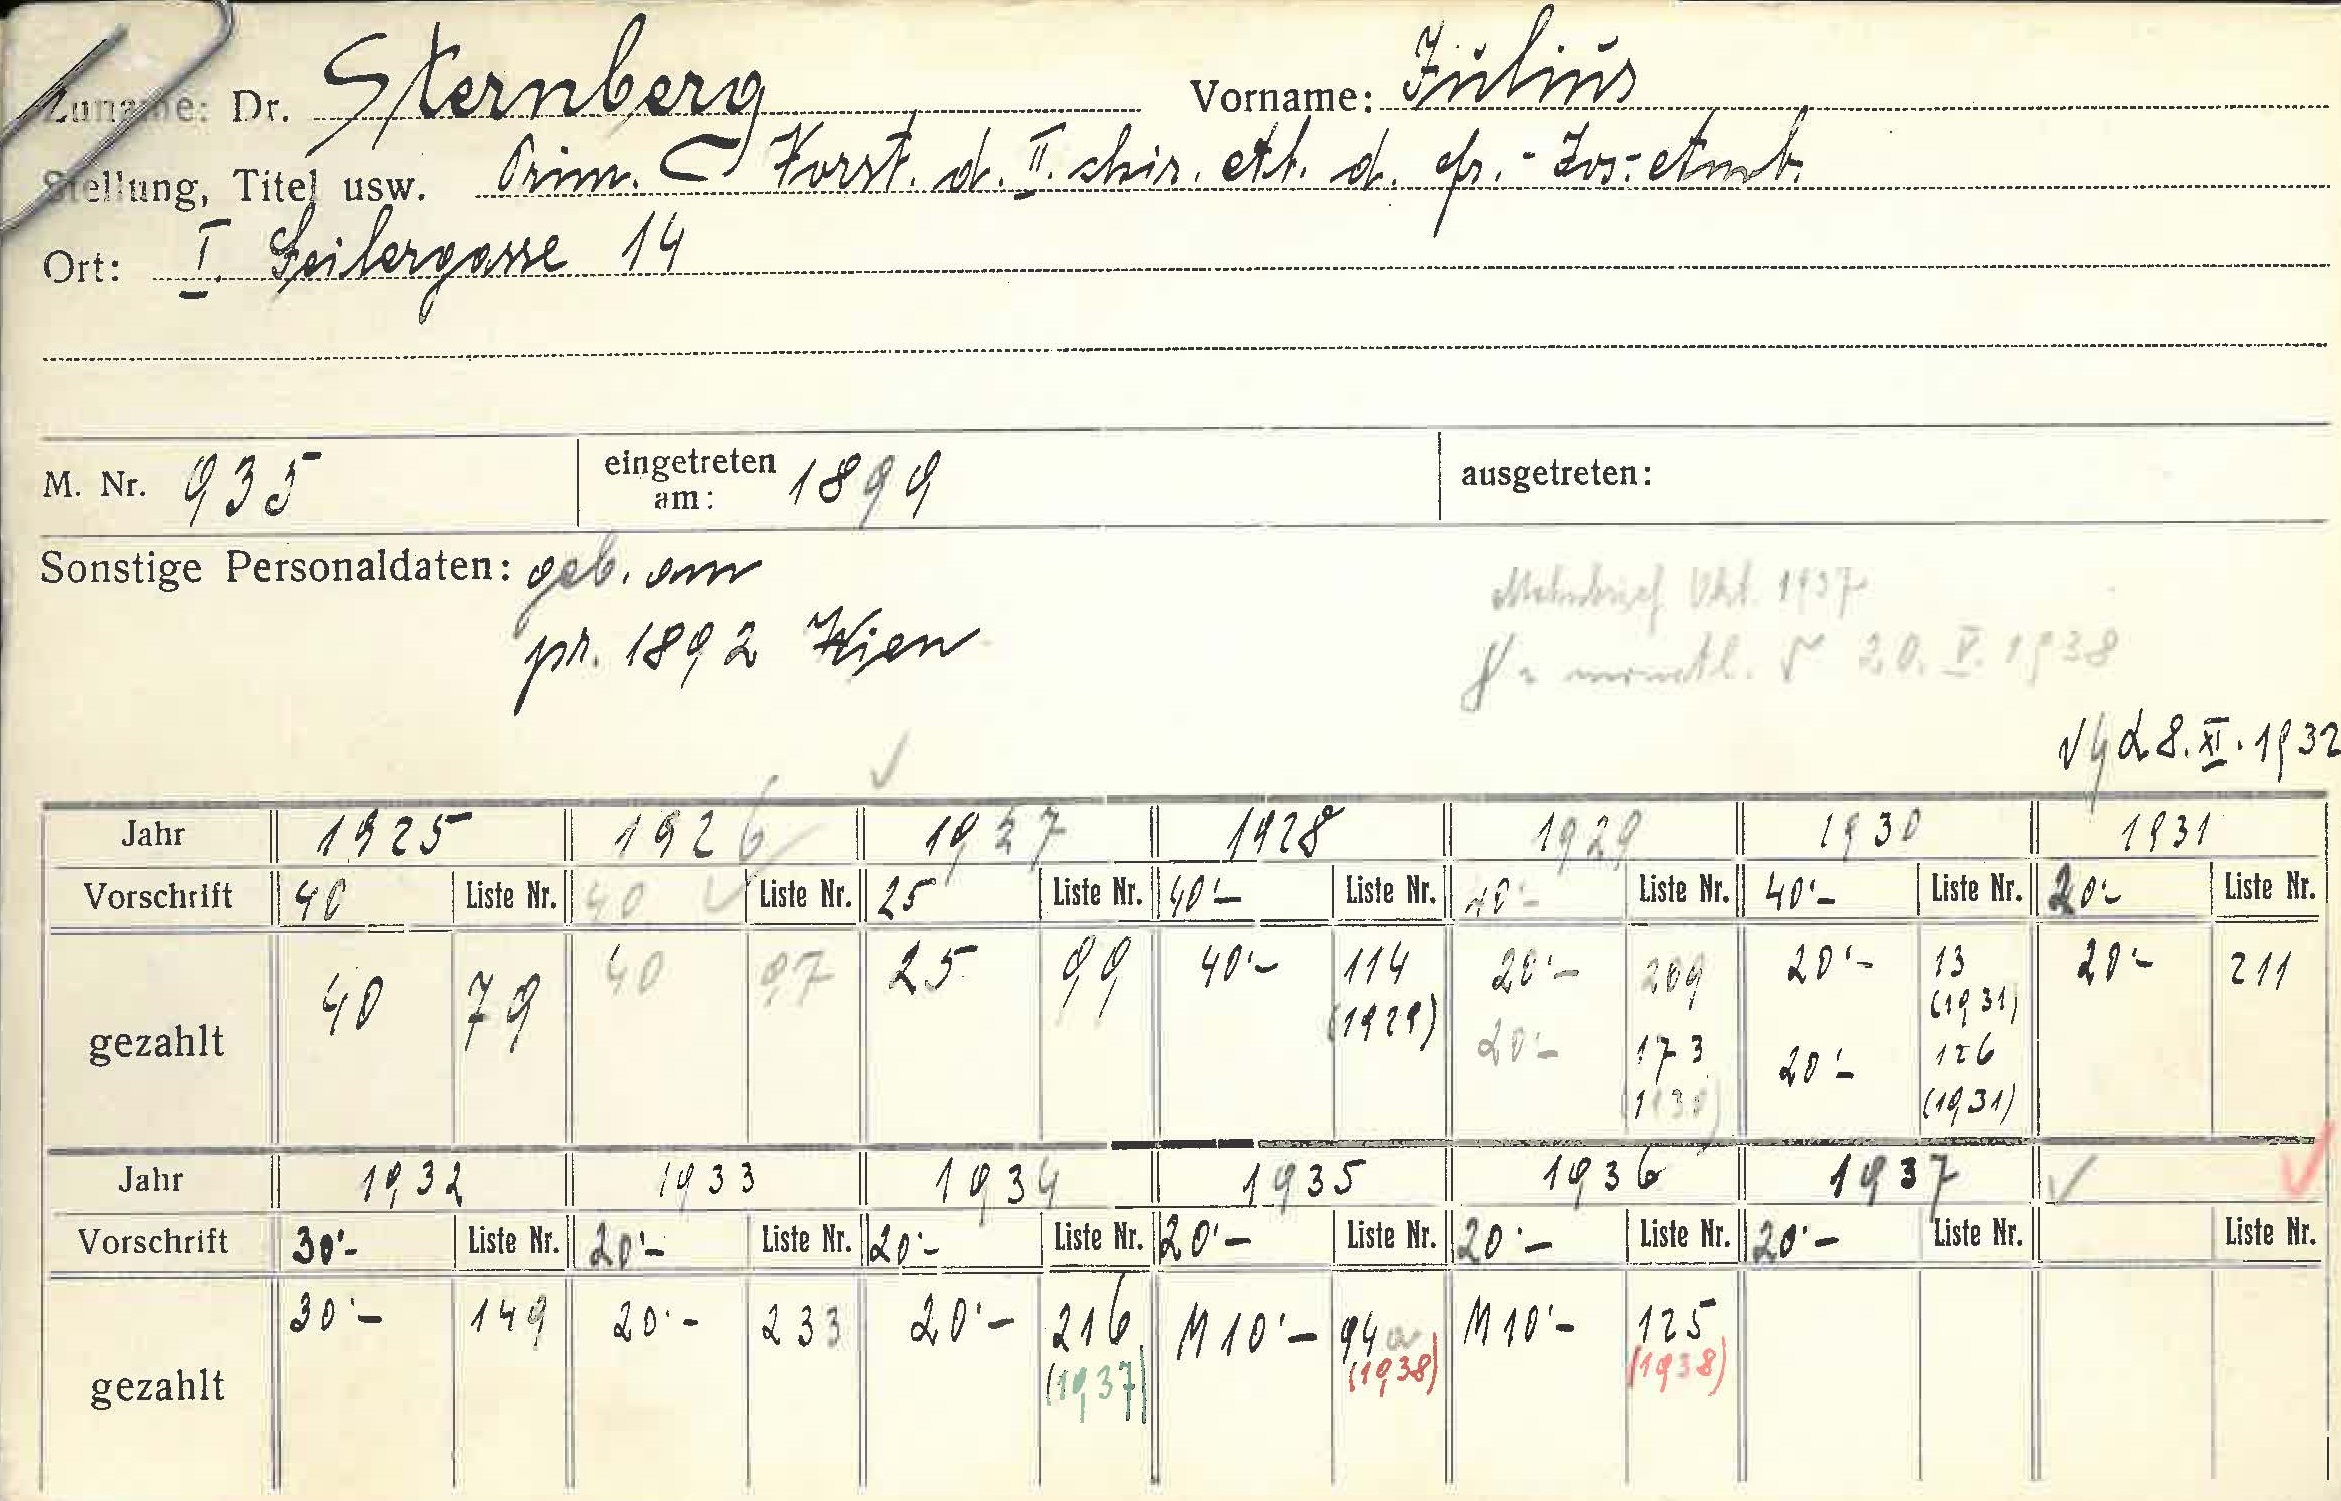 Zuname: Dr. Sternberg Vorname: Julius
Stellung, Titel usw. Prim. Vorst. d. II. chir. Abt. d. Fr.-Jos.-Amb.
Ort: I. Seilergasse 14
M. Nr. 935 eingetreten am: 1899 ausgetreten:
Sonstige Personaldaten: geb. am
pr. 1892 Wien
Mahnbrief Okt. 1937
monatl. 20. V. 1938
28. XI. 1932
Jahr 1925 1926 1927 1928 1929 1930 1931
Vorschrift 40 Liste Nr. 40 Liste Nr. 25 Liste Nr. 40'- Liste Nr. 40'- Liste Nr. 40'- Liste Nr. 20'- Liste Nr.
gezahlt 40 79 40 97 25 99 40'- 114 20'- 209 20'- 13 20'- 211
(1929) (1931)
20'- 173 20'- 126
(1930) (1931)
Jahr 1932 1933 1934 1935 1936 1937
Vorschrift 30'- Liste Nr. 20'- Liste Nr. 20'- Liste Nr. 20'- Liste Nr. 20'- Liste Nr. 20'- Liste Nr. Liste Nr.
gezahlt 30'- 149 20'- 233 20'- 216 M 10'- 94a M 10'- 125
(1937) (1938) (1938)